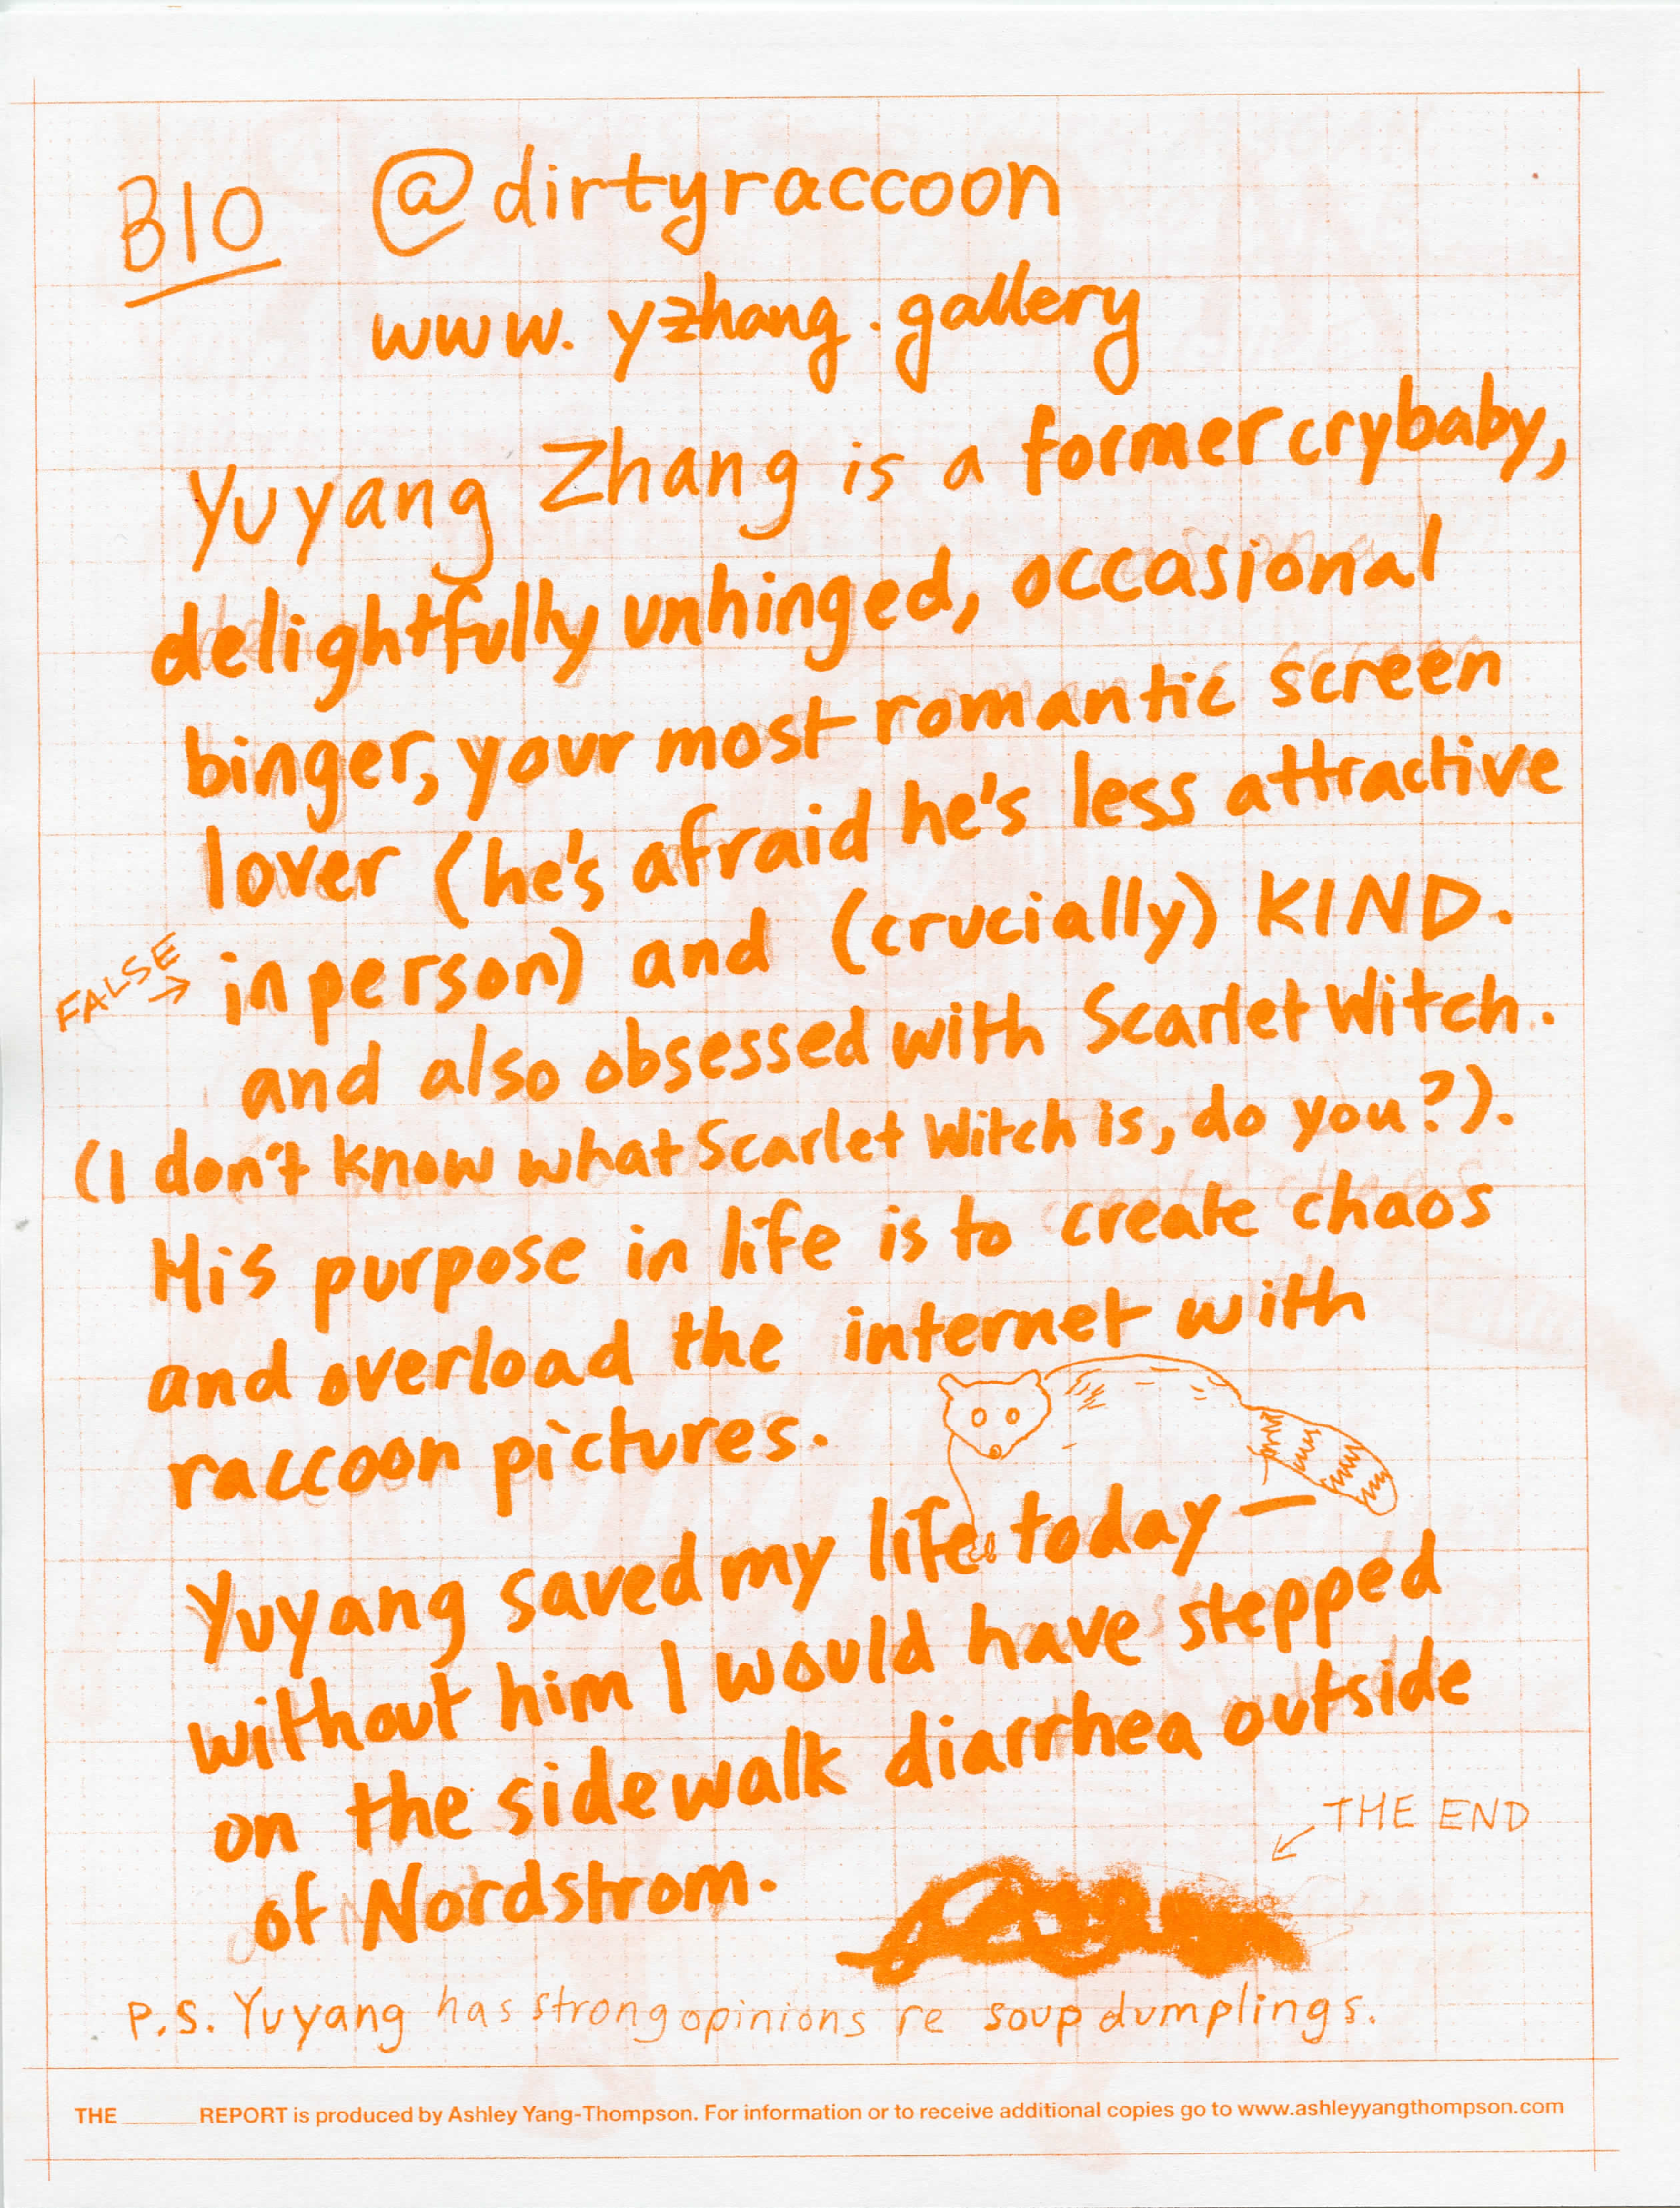 BIO @dirtyraccoon
www.yzhang.gallery
Yuyang Zhang is a former crybaby,
delightfully unhinged, occasional
binger, your most romantic screen
lover (he's afraid he's less attractive
FALSE → in person) and (crucially) KIND.
and also obsessed with Scarlet Witch.
(I don't know what Scarlet Witch is, do you?).
His purpose in life is to create chaos
and overload the internet with
raccoon pictures.
Yuyang saved my life today —
without him I would have stepped
on the sidewalk diarrhea outside
of Nordstrom.
THE END
P.S. Yuyang has strong opinions re soup dumplings.
THE ______ REPORT is produced by Ashley Yang-Thompson. For information or to receive additional copies go to www.ashleyyangthompson.com